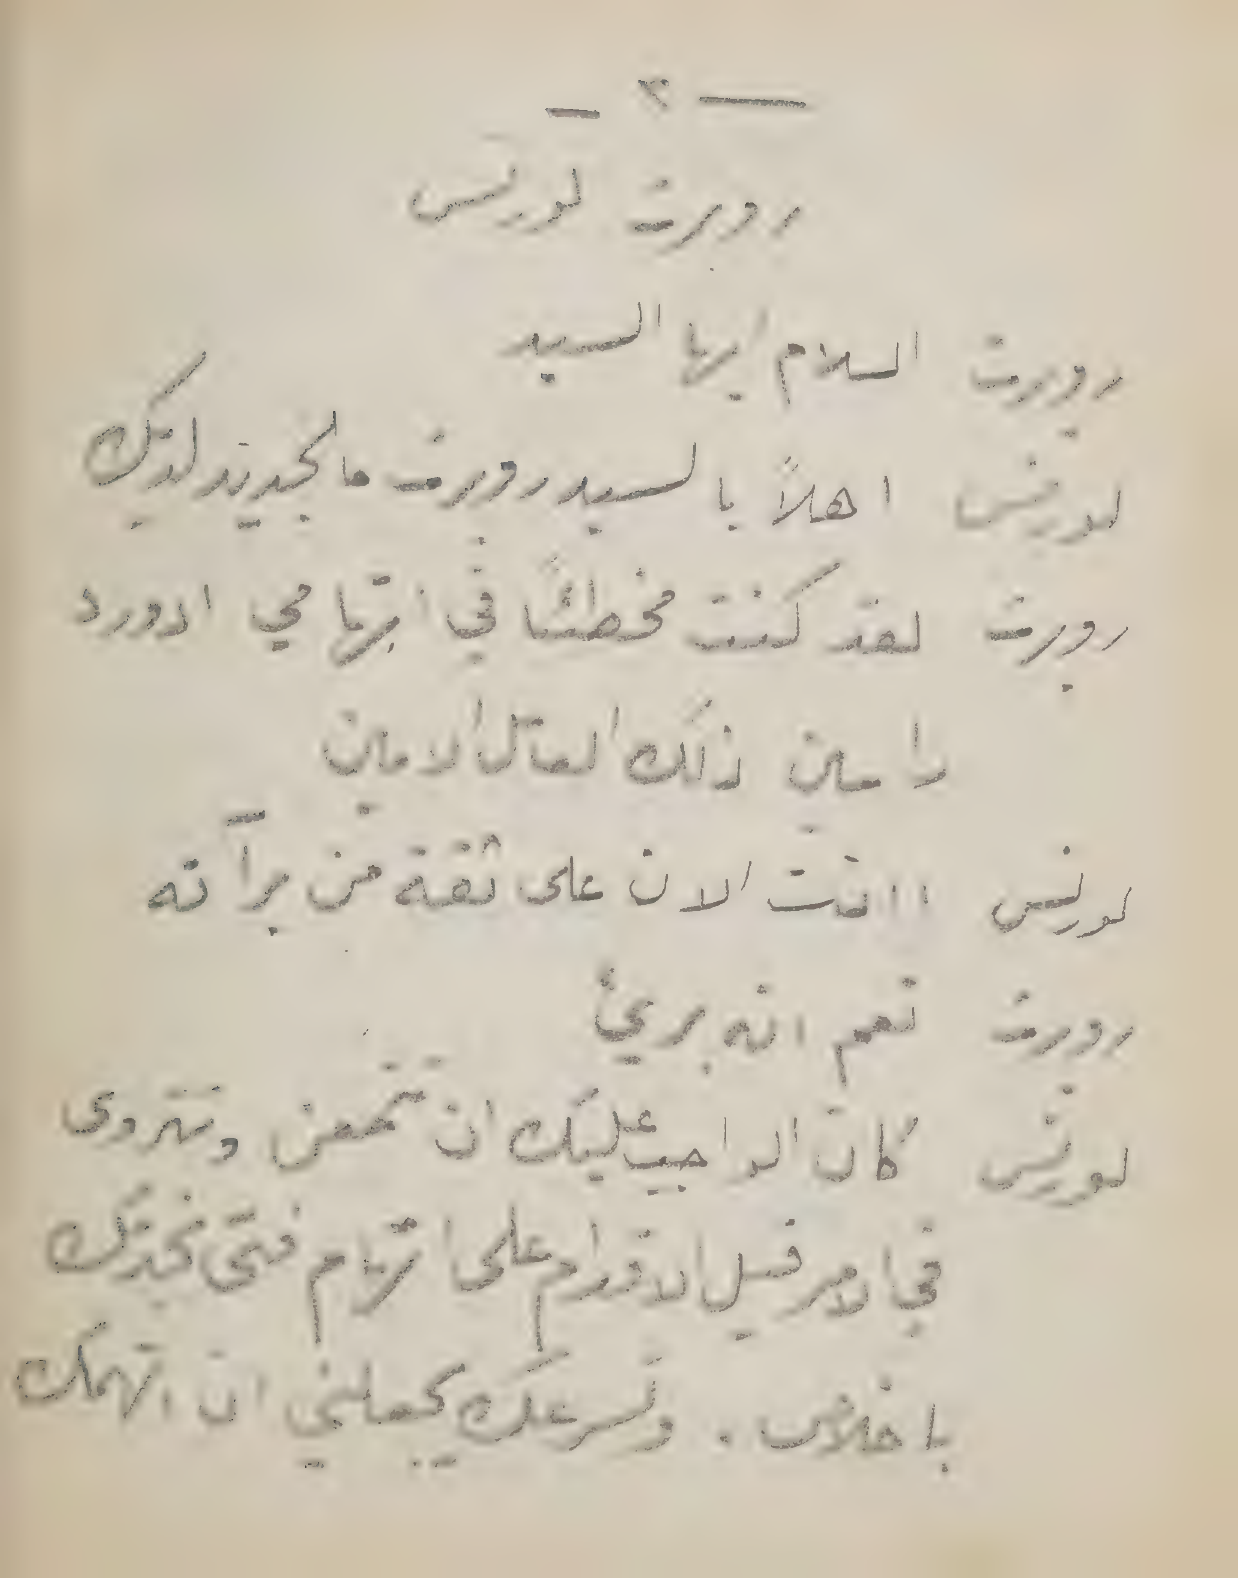 — ٣ —
روبرت لورنس
روبرت السلام ايها السيد
لورنس اهلاً بالسيد روبرت ما لجديد لديك
روبرت لقد كنت مخطئاً في اتهامي ادورد
ذلك العاقل الامين
لورنس اانت الان على ثقة من برآته
روبرت نعم انه بريئ
لورنس كان الواجب عليك ان تتمعن وتتروى
في الامر قبل الاقدام على اتهام فتى يخدمك
باخلاص . وتسرعك يجعلني ان اتهمك